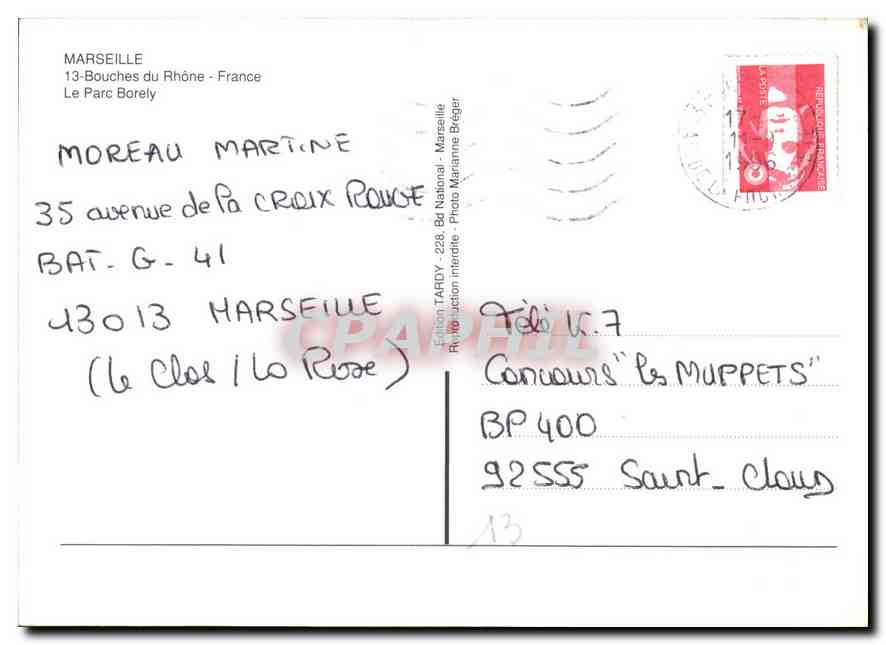 MARSEILLE
13-Bouches du Rhône - France
Le Parc Borely
MOREAU MARTINE
35 avenue de la CROIX ROUGE
BAT - G - 41
13013 MARSEILLE
(Le Clos / La Rose)
Edition TARDY - 228, Bd National - Marseille
Reproduction interdite - Photo Marianne Bréger
LA POSTE
REPUBLIQUE FRANÇAISE
17
CPAPHIL
Télé K.7
Concours "les MUPPETS"
BP 400
92555 Saint-Cloud
13